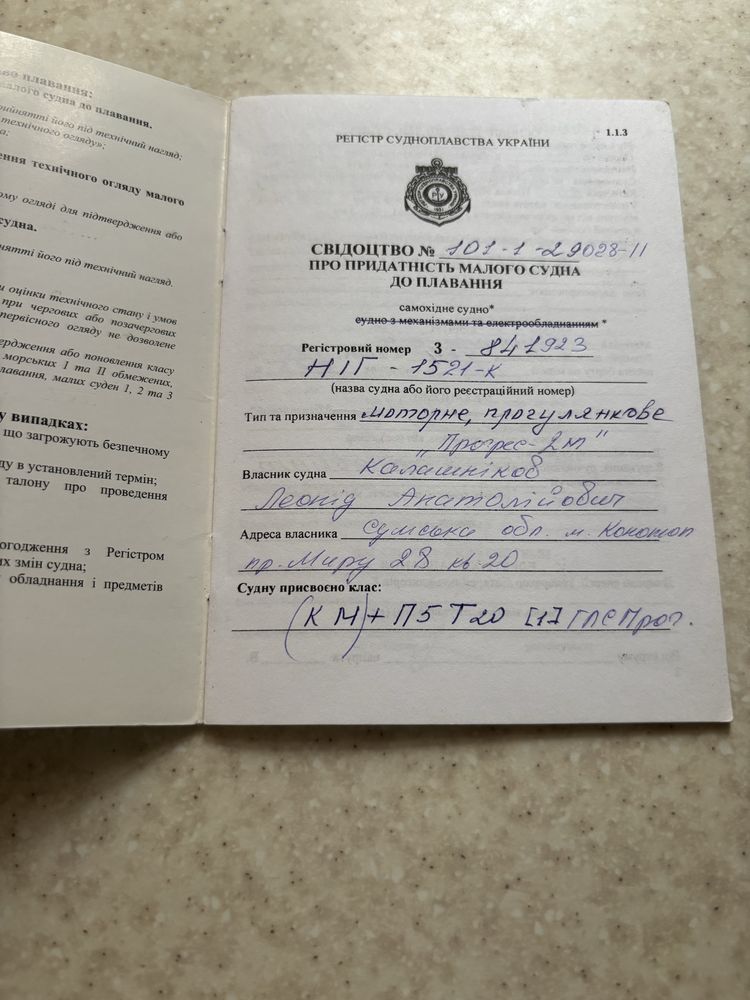 во плавання:
малого судна до плавання.
прийнятті його під технічний нагляд;
технічного огляду»;
а;
ення технічного огляду малого
ому огляді для підтвердження або
судна.
йнятті його під технічний нагляд.
и оцінки технічного стану і умов
при чергових або позачергових
первісного огляду не дозволене
вердження або поновлення класу
морських 1 та ІІ обмежених,
плавання, малих суден 1, 2 та 3
у випадках:
що загрожують безпечному
ду в установлений термін;
талону про проведення
огодження з Регістром
их змін судна;
обладнання і предметів
1.1.3
РЕГІСТР СУДНОПЛАВСТВА УКРАЇНИ
РУ
СВІДОЦТВО № 101-1-29028-11
ПРО ПРИДАТНІСТЬ МАЛОГО СУДНА
ДО ПЛАВАННЯ
самохідне судно*
судно з механізмами та електрообладнанням *
Регістровий номер 3 - 841923
НІГ - 1521-К
(назва судна або його реєстраційний номер)
Тип та призначення моторне, прогулянкове
"Прогрес-2М"
Власник судна Калашніков
Леонід Анатолійович
Адреса власника Сумська обл. м. Конотоп
пр. Миру 28 кв 20
Судну присвоєно клас:
(КМ)+ П5 Т20 [1] ГЛС Прог.